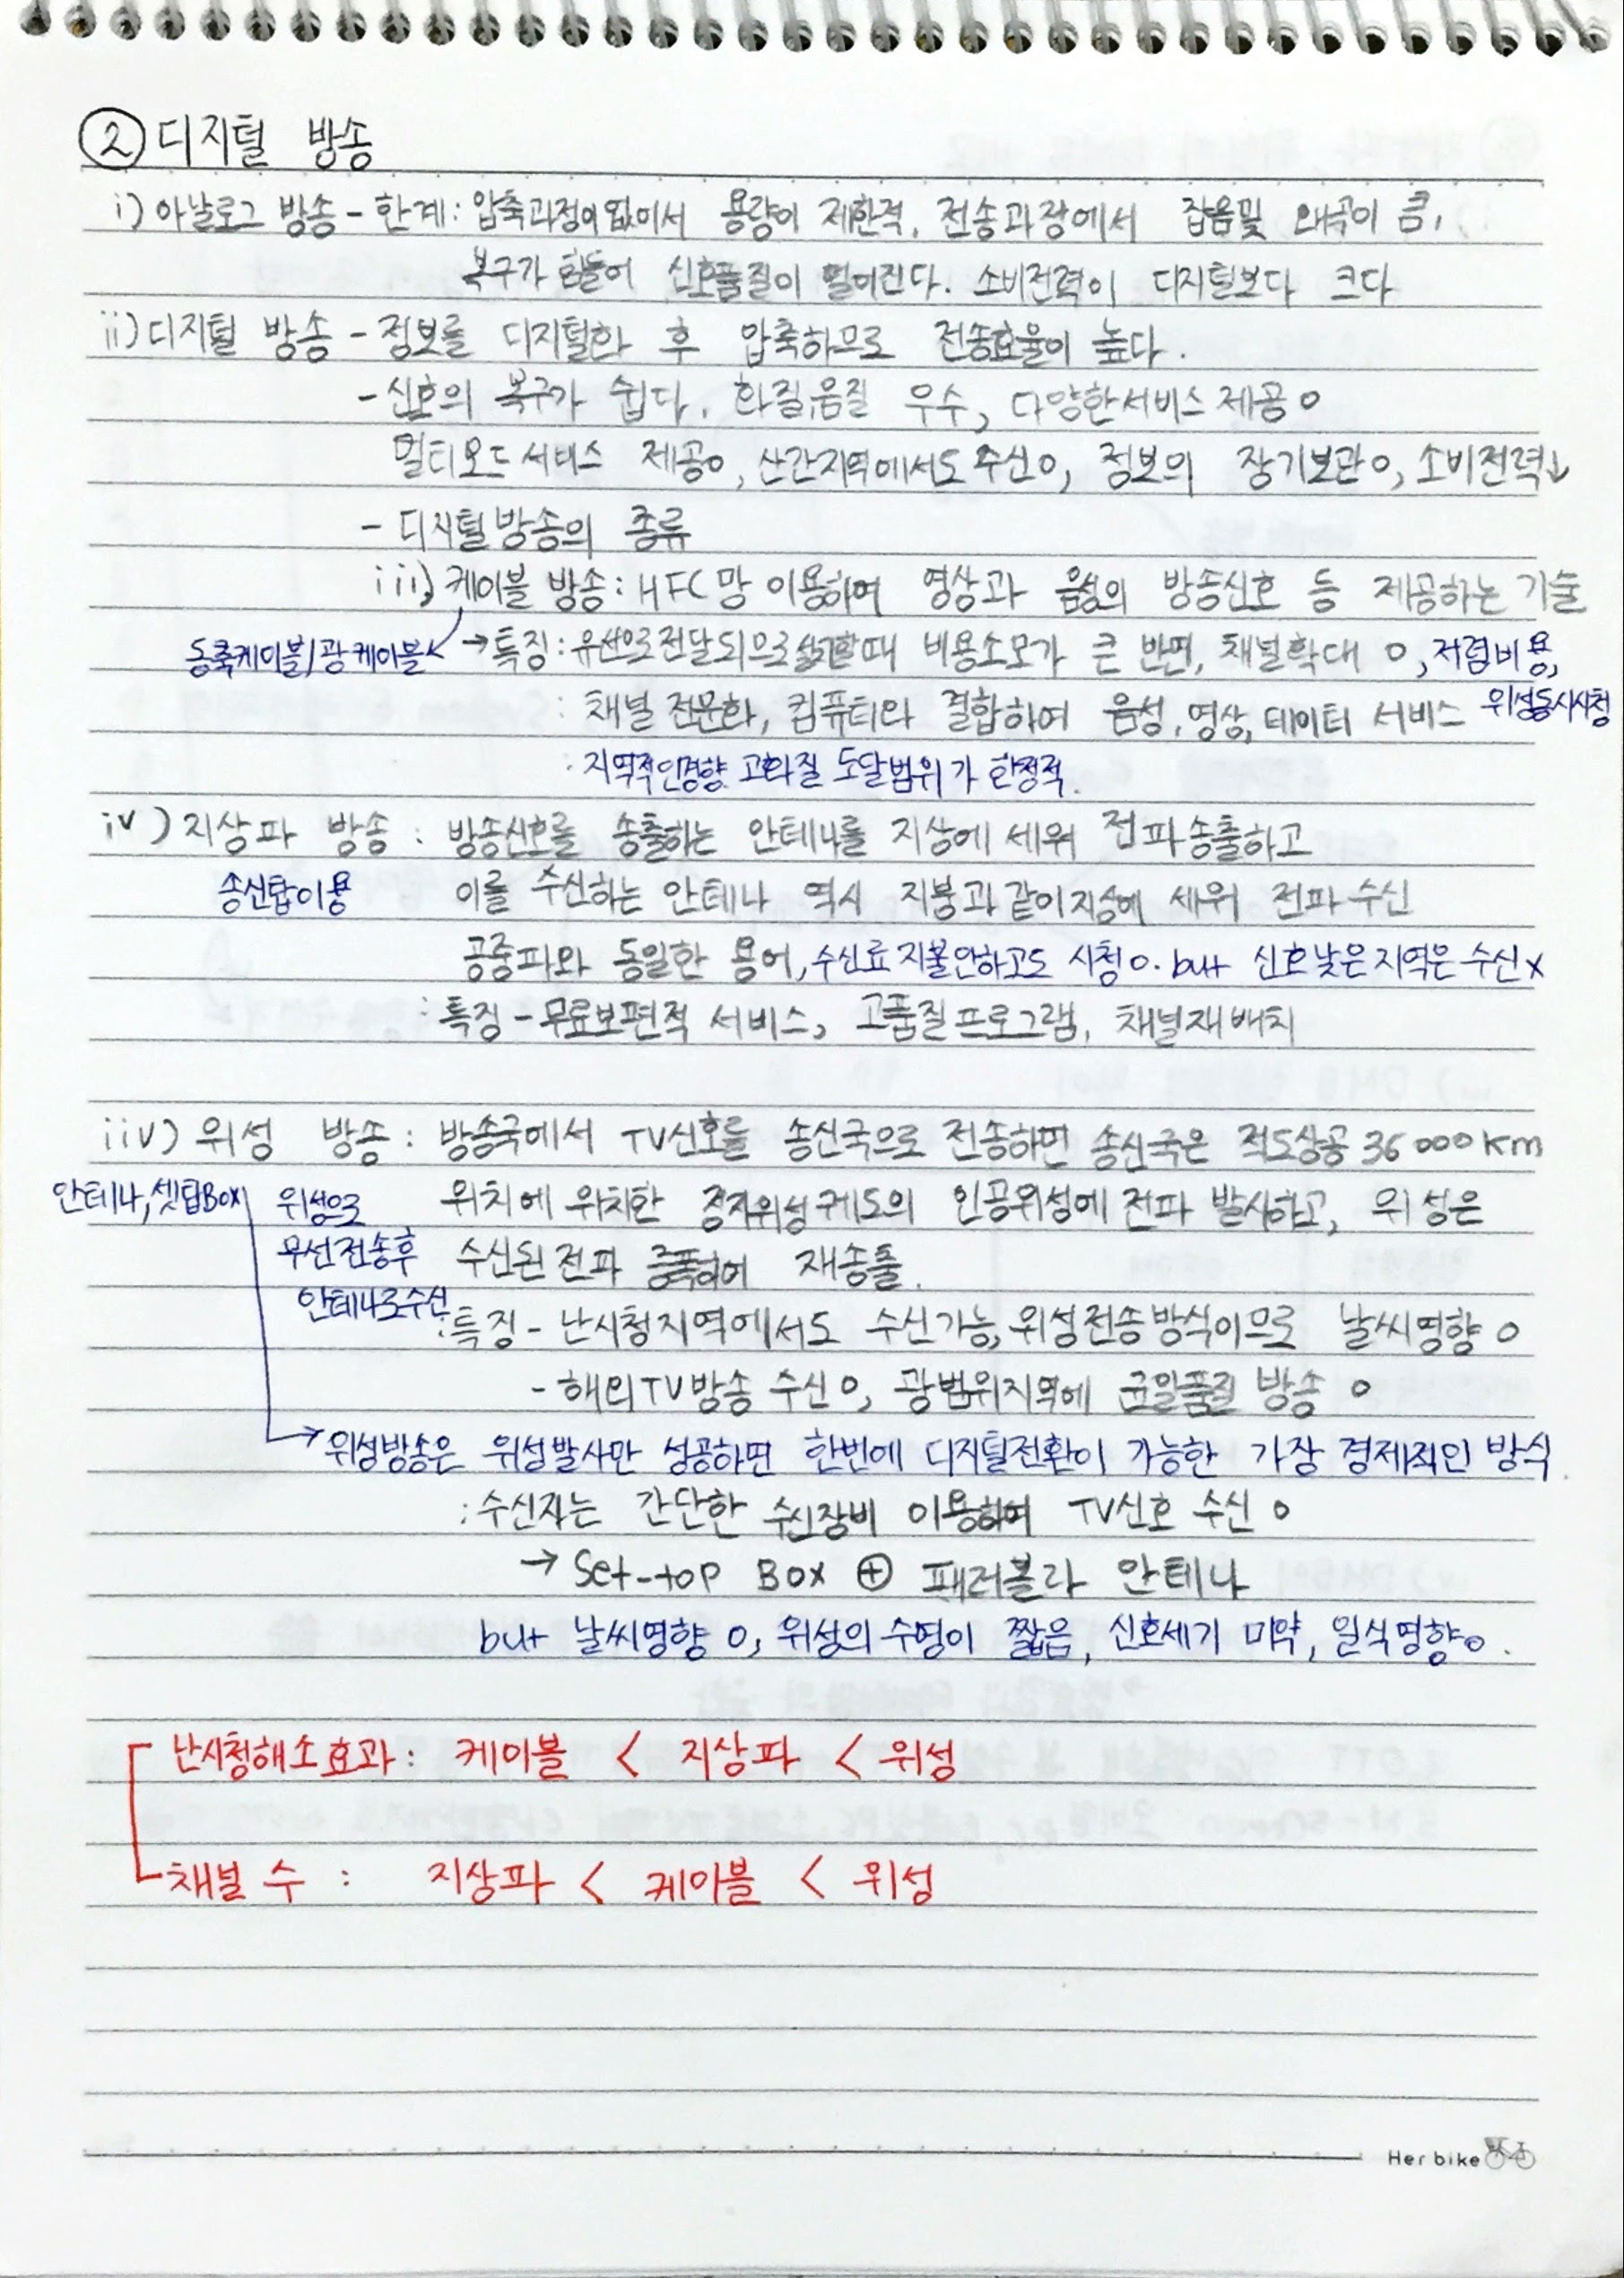 ② 디지털 방송
i) 아날로그 방송 - 한계 : 압축과정이 없어서 용량이 제한적, 전송과정에서 잡음및 왜곡이 큼,
복구가 힘들어 신호품질이 떨어진다. 소비전력이 디지털보다 크다
ii) 디지털 방송 - 정보를 디지털화 후 압축하므로 전송효율이 높다.
- 신호의 복구가 쉽다. 화질,음질 우수, 다양한서비스 제공 o
멀티모드 서비스 제공o, 산간지역에서도 수신o, 정보의 장기보관o, 소비전력↓
- 디지털 방송의 종류
iii) 케이블 방송 : HFC 망 이용하여 영상과 음성의 방송신호 등 제공하는 기술
동축케이블/광케이블 → 특징 : 유선으로전달되므로 설치할때 비용소모가 큰 반면, 채널확대 o, 저렴비용,
: 채널 전문화, 컴퓨터와 결합하여 음성, 영상, 데이터 서비스 위성동시시청
: 지역적인경향 고화질 도달범위가 한정적.
iv) 지상파 방송 : 방송신호를 송출하는 안테나를 지상에 세워 전파송출하고
송신탑이용 이를 수신하는 안테나 역시 지붕과 같이 지상에 세워 전파 수신
공중파와 동일한 용어, 수신료 지불안하고도 시청o. but 신호 낮은 지역은 수신x
: 특징 - 무료보편적 서비스, 고품질프로그램, 채널재배치
iiv) 위성 방송 : 방송국에서 TV신호를 송신국으로 전송하면 송신국은 적도상공 36000km
안테나, 셋탑Box 위성으로 위치에 위치한 정지위성 궤도의 인공위성에 전파 발사하고, 위성은
무선전송후 수신된 전파 증폭하여 재송출.
안테나로수신
: 특징 - 난시청지역에서도 수신가능, 위성전송방식이므로 날씨영향 o
- 해외TV방송 수신o, 광범위지역에 균일품질 방송 o
→ 위성방송은 위성발사만 성공하면 한번에 디지털전환이 가능한 가장 경제적인 방식.
: 수신자는 간단한 수신장비 이용하여 TV신호 수신 o
→ Set-top Box ⊕ 패러볼라 안테나
but 날씨영향 o, 위성의 수명이 짧음, 신호세기 미약, 일식영향o.
난시청해소효과 : 케이블 < 지상파 < 위성
채널 수 : 지상파 < 케이블 < 위성
Her bike